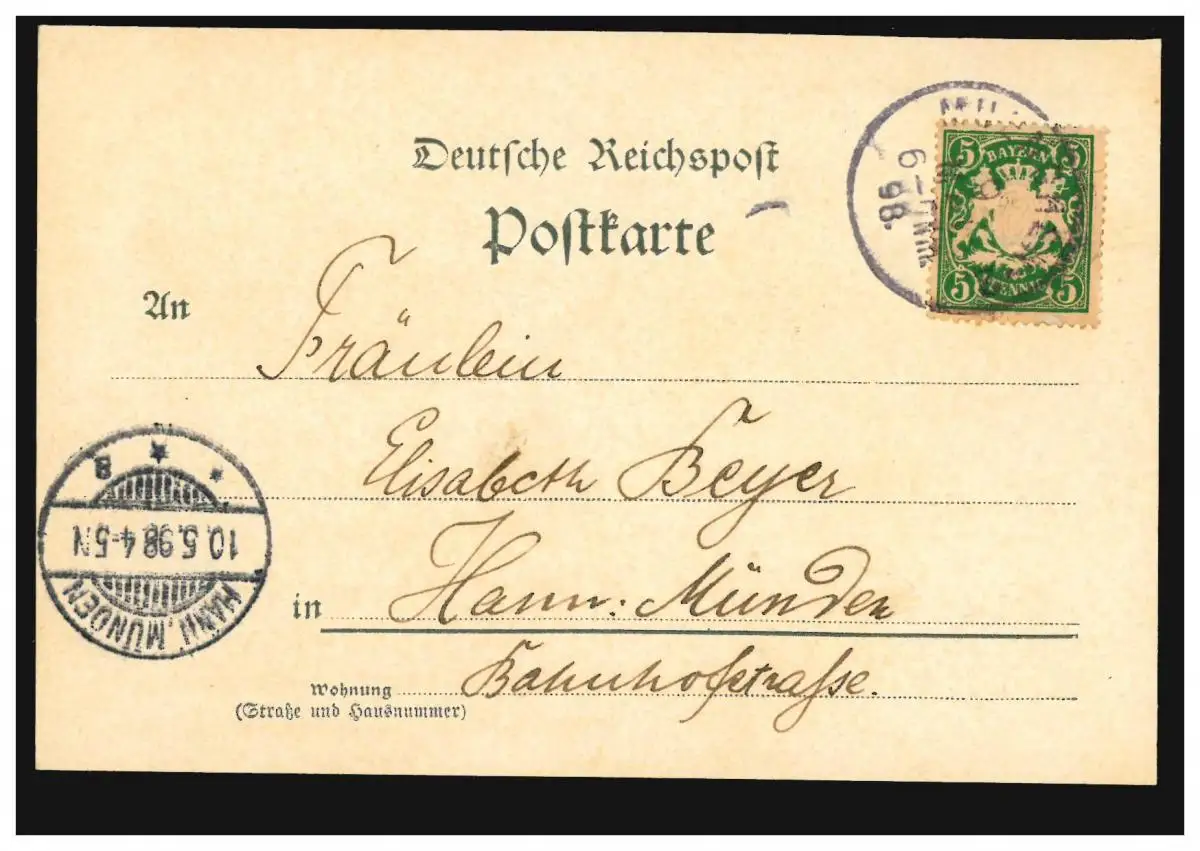 Deutsche Reichspost
Postkarte
5 BAYERN 5
5 PFENNIG 5
6-7 Nm.
98.
An Fräulein
Elisabeth Beyer
in Hann: Münden
Wohnung Bahnhofstrasse.
(Straße und Hausnummer)
HANN. MÜNDEN
10.5.98 4-5N
* * B